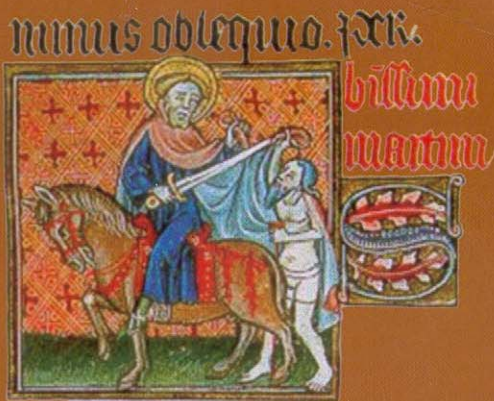 minus obsequio.
bissimi
martini
S